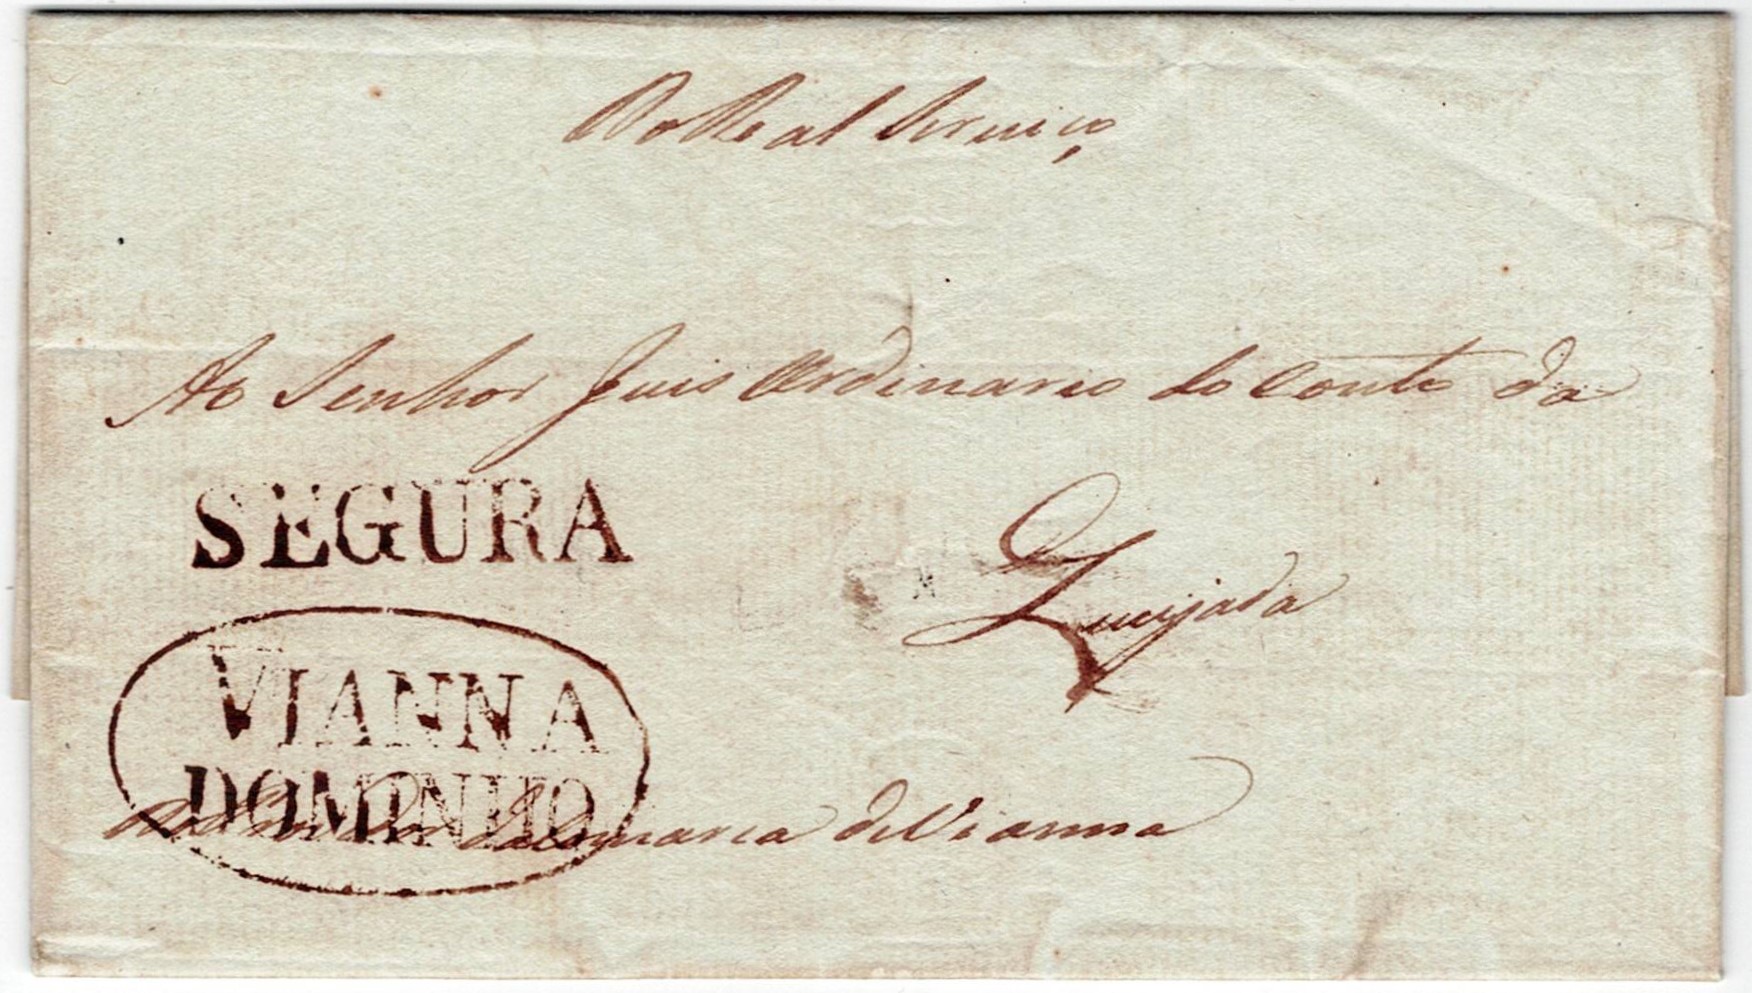 Do Real Serviço
Ao Senhor Juis Ordinario do Couto da
SEGURA
Queijada
VIANNA
DOMINHO
Do Corregedor da Comarca de Vianna